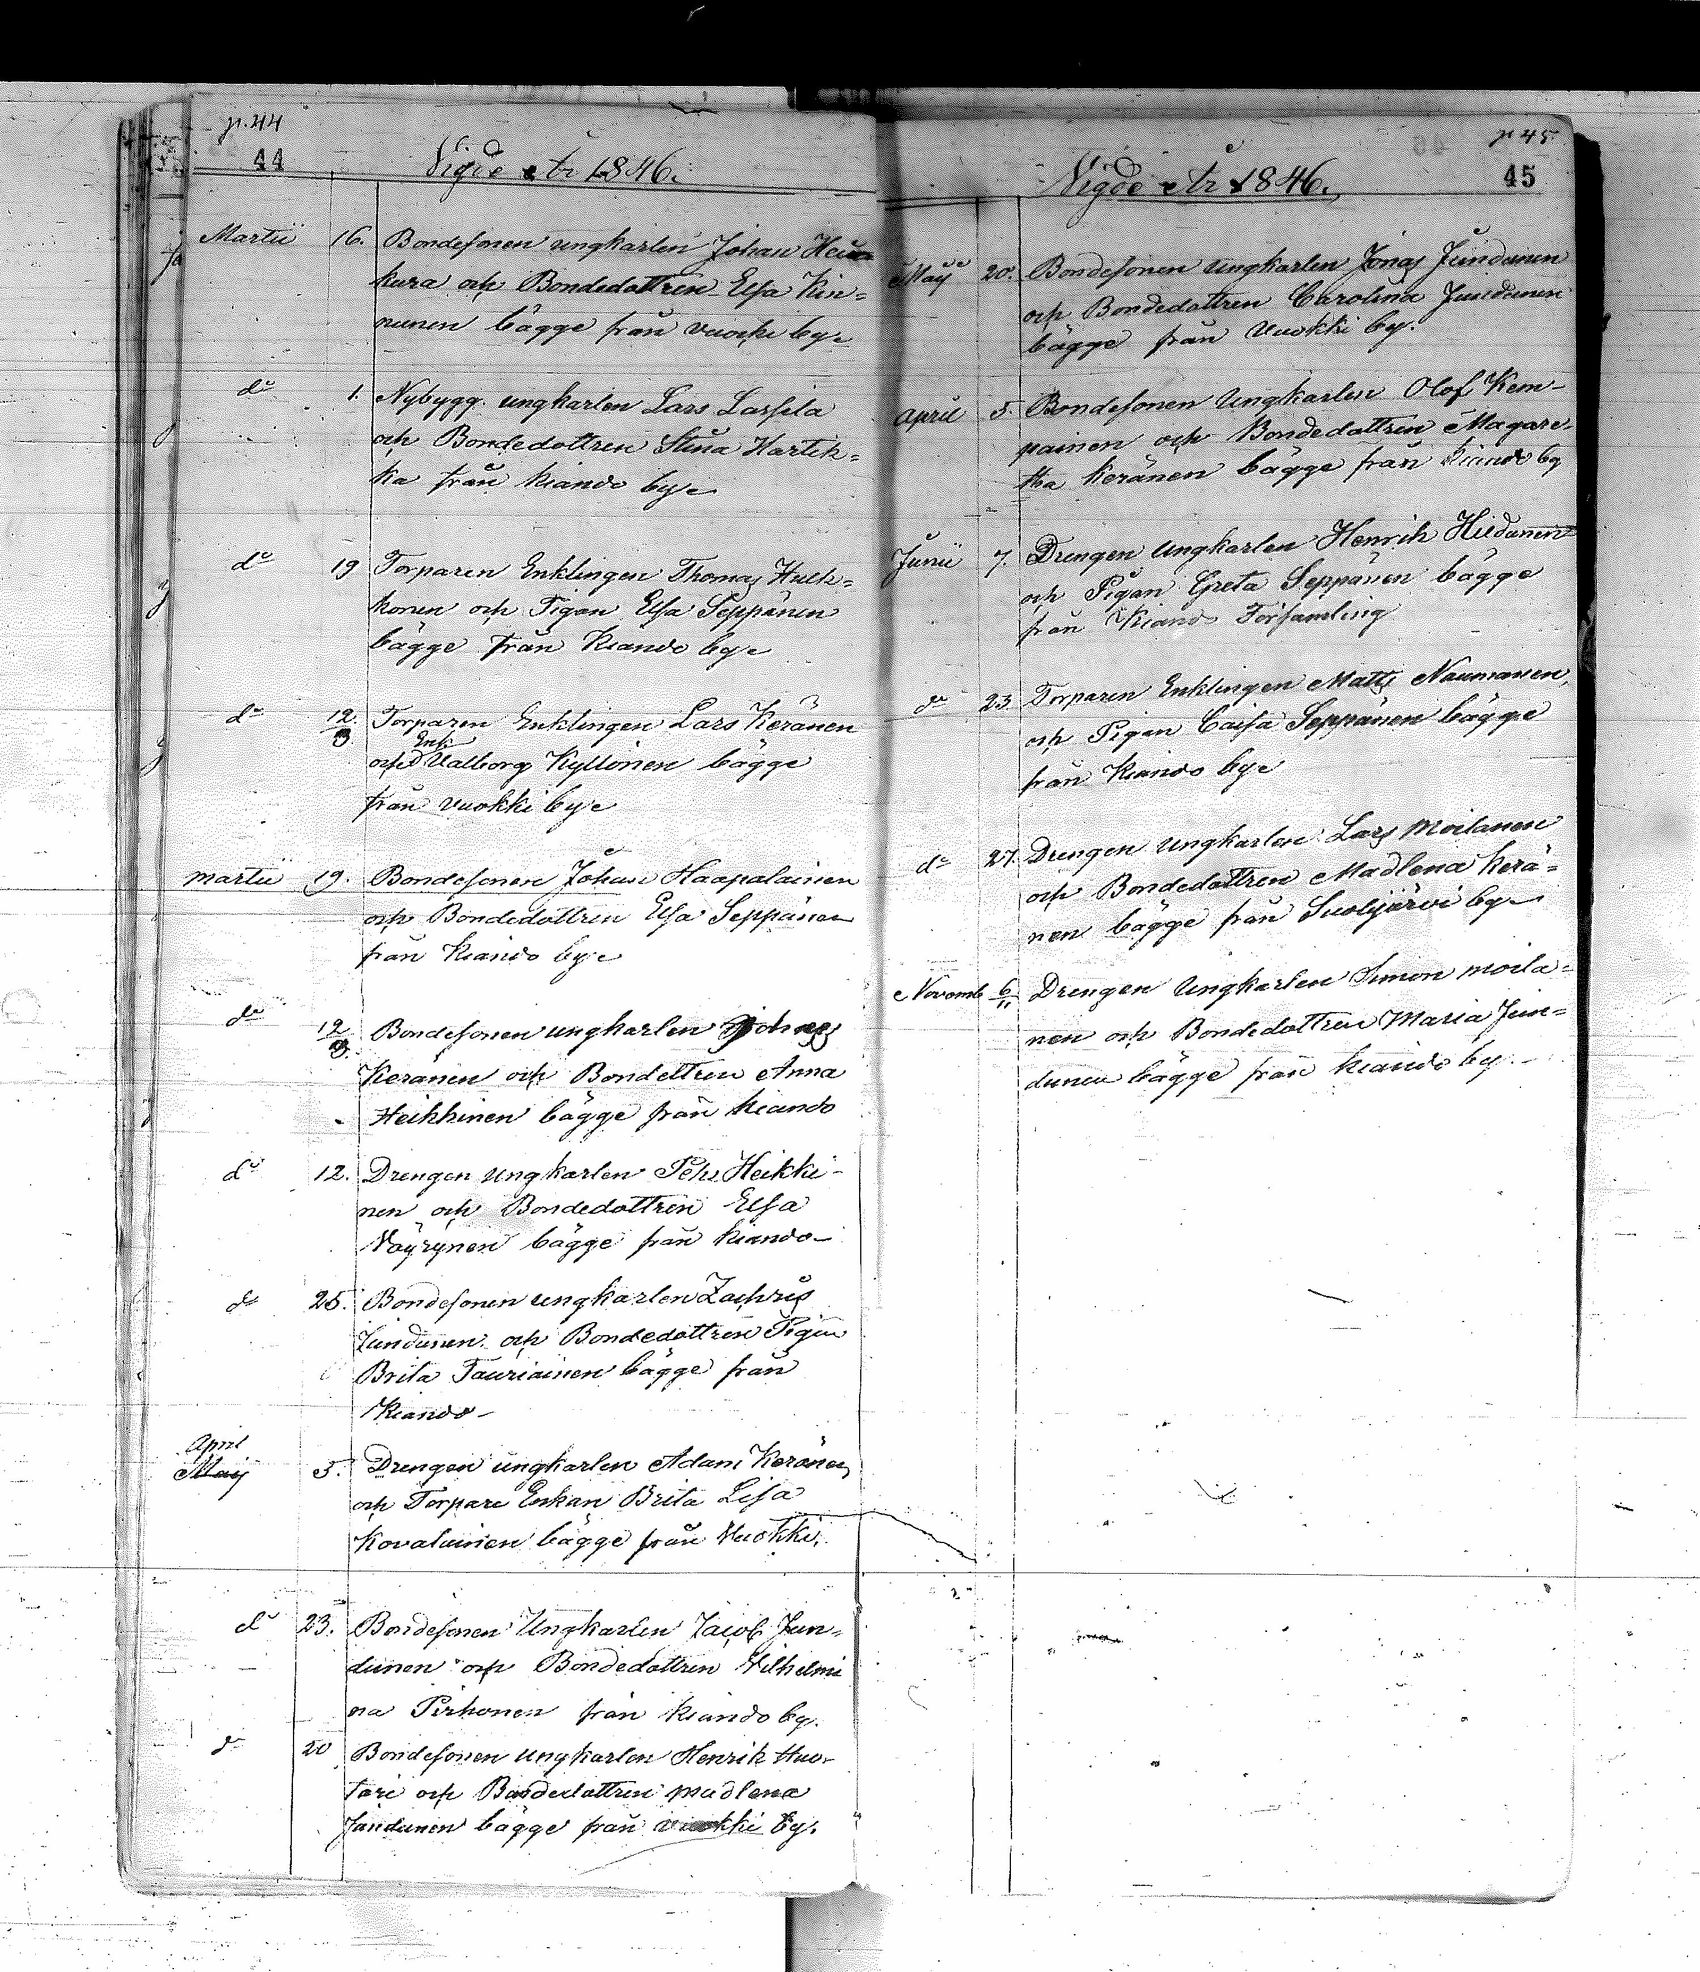 p. 44
44
Vigde År 1846.
Martii 16. Bondesonen ungkarlen Johan
kura och Bondedottren Elsa Kin=
nunen bägge från vuocki by
do 1. Nybygg. ungkarlen Lars Lassila
och Bondedottren Stina Hartik=
ka från Kiando by
do 19 Torparen Enklingen Thomas Hulk=
konen och Pigan Elsa Seppänen
bägge från Kiando by
do 12/3 Torparen Enklingen Lars Keränen
och Enk Valborg Kyllönen bägge
från vuokki by
martii 19. Bondesonen Johan Haapalainen
och Bondedottren Elsa Seppänen
från Kiando by
do 12/3. Bondesonen ungkarlen
Keränen och Bondettren Anna
Heikkinen bägge från Kiando
do 12. Drengen ungkarlen Pehr Heikki-
nen och Bondedottren Elsa
Väyrynen bägge från Kiando
do 25. Bondesonen ungkarlen Zachris
Jundunen och Bondedottren Pigan
Brita Tauriainen bägge från
Kiando
April
Maij 5. Drengen ungkarlen Adam Keränen
och Torpare Enkan Brita Lisa
Kovalainen bägge från Vuokki.
do 23. Bondesonen Ungkarlen Jacob Jun=
dunen och Bondedottren Wilhelmi
na Pirhonen från Kiando by.
do 20 Bondesonen ungkarlen Henrik Huo-
tari och Bondedottren Madlena
Jundunen bägge från vuokki by.
p 45
45
Vigde År 1846.
May 20. Bondesonen ungkarlen Jonas Jundunen
och Bondedottren Carolina Jundunen
bägge från Vuokki by.
April 5. Bondesonen Ungkarlen Olof Kem-
painen och Bondedottren Magare-
tha Keränen bägge från Kiando by
Junii 7. Drengen ungkarlen Henrik Hildunen
och Pigan Greta Seppänen bägge
från Kiando Församling
do 23. Torparen Enklingen Matts Naumanen,
och Pigan Caisa Seppänen bägge
från Kiando by
do 27. Drengen Ungkarlen Lars Moilanen
och Bondedottren Madlena Kerä=
nen bägge från Suolijärvi by
Novemb 6/11 Drengen Ungkarlen Simon Moila=
nen och Bondedottren Maria Jun=
dunen bägge från Kiando by.